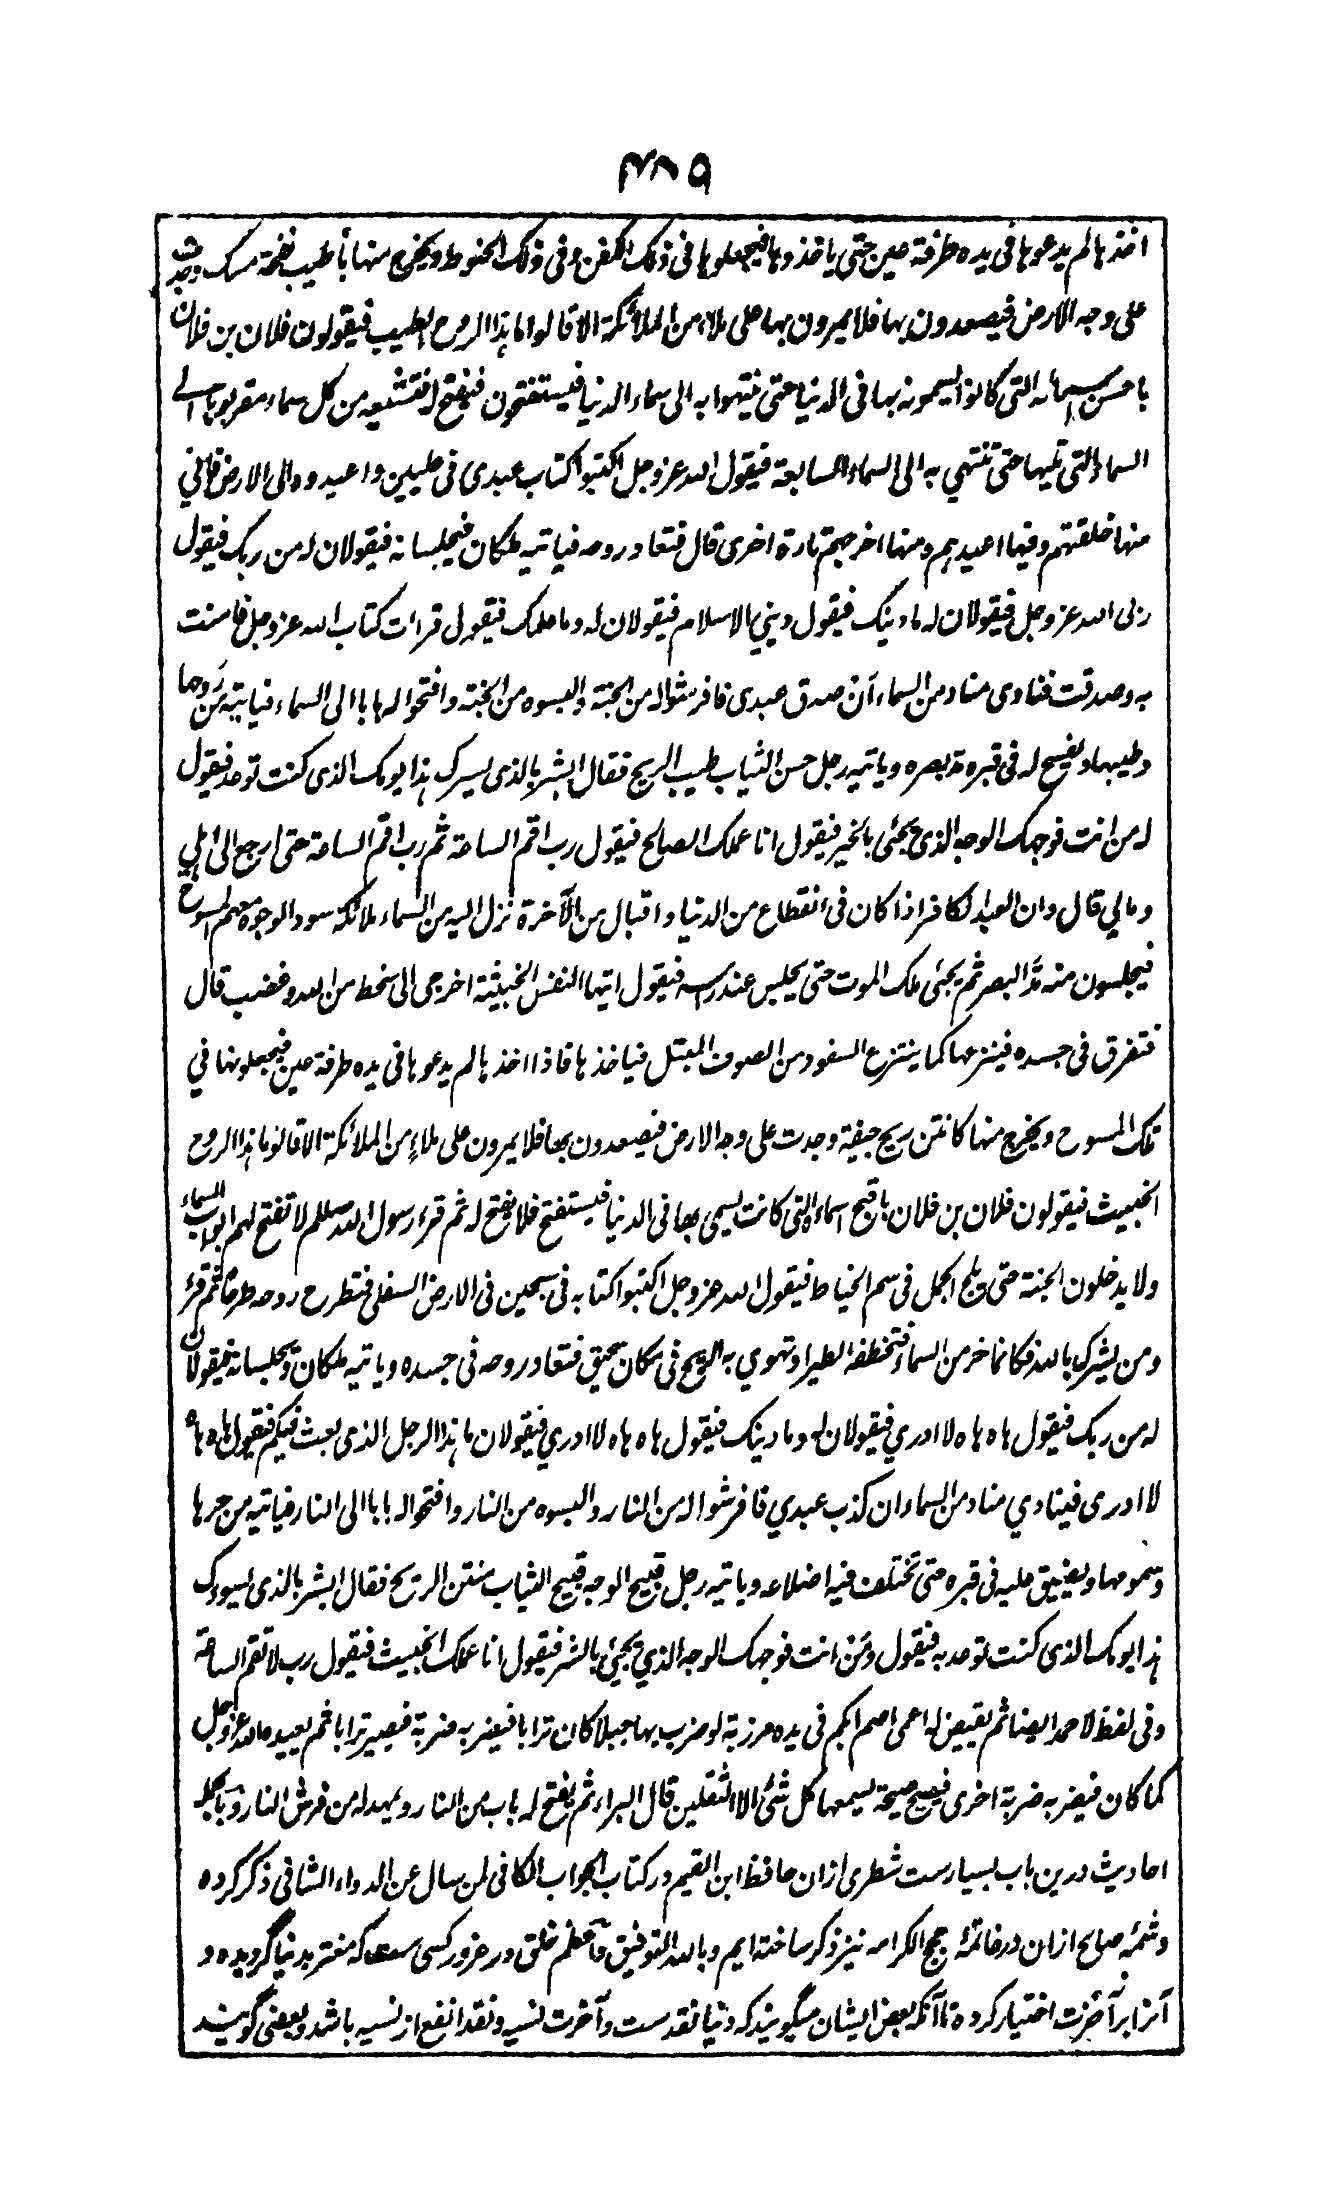 ۴۸۹
اخذها لم يدعوها فى يده طرفة عين حتى ياخذوها فيجعلوها فى ذلك الكفن و فى ذلك الحنوط ويخرج منها بأطيب نفحة مسك وجدت
على وجه الارض فيصعدون بها فلا يمرون بها على ملاء من الملائكة الا قالوا ما هذا الروح الطيب فيقولون فلان بن فلان
باحسن اسمائه التى كانوا يسمونه بها فى الدنيا حتى ينتهوا به الى سماء الدنيا فيستفتحون فيفتح له فتشيعه من كل سماء مقربوها الے
السماء التى تليها حتى تنتهي به الى السماء السابعة فيقول الله عز وجل اكتبوا كتاب عبدى فى عليين واعيدوه الى الارض فانى
منها خلقتهم وفيها اعيدهم ومنها اخرجهم تارة اخرى قال فتعاد روحه فياتيه ملكان فيجلسانه فيقولان له من ربك فيقول
ربى الله عز وجل فيقولان له ما دينك فيقول ديني الاسلام فيقولان له وما علمك فيقول قرات كتاب الله عز وجل فامنت
به وصدقت فنادى مناد من السماء أن صدق عبدى فافرشوا له من الجنة والبسوه من الجنة وافتحوا لها بابا الى السماء فياتيه من روحها
وطيبها ويفسح له فى قبره مد بصره وياتيه رجل حسن الثياب طيب الريح فقال ابشر بالذى يسرك هذا يومك الذى كنت توعد فيقول
له من انت فوجهك الوجه الذى يجئى بالخير فيقول انا عملك الصالح فيقول رب اقم الساعة ثم رب اقم الساعة حتى ارجع الى اهلي
ومالي قال وان العبد الكافر اذا كان فى انقطاع من الدنيا و اقبال من الآخرة نزل اليه من السماء ملائكة سود الوجوه معهم المسوح
فيجلسون منه مدّ البصر ثم يجئى ملك الموت حتى يجلس عند راسه فيقول ايتها النفس الخبيثة اخرجى الى سخط من الله وغضب قال
فتفرق فى جسده فينزعها كما ينتزع السفود من الصوف المبتل فياخذها فاذا اخذها لم يدعوها فى يده طرفة عين فيجعلونها في
تلك المسوح ويخرج منها كانتن ريح جيفة وجدت على وجه الارض فيصعدون بها فلا يمرون على ملاءٍ من الملائكة الا قالوا ما هذا الروح
الخبيث فيقولون فلان بن فلان باقبح اسماءه التى كانت يسمى بها فى الدنيا فيستفتح فلا يفتح له ثم قرء رسول الله صللم لا تفتح لهم ابواب السماء
ولا يدخلون الجنة حتى يلج الجمل فى سم الخياط فيقول الله عز وجل اكتبوا كتابه فى سجين فى الارض السفلى فتطرح روحه طرحا ثم قرء
ومن يشرك بالله فكانما خر من السماء فتخطفه الطير او تهوي به الريح في مكان سحيق فتعاد روحه فى جسده وياتيه ملكان ويجلسانه فيقولان
له من ربك فيقول هاه هاه لا ادري فيقولان له وما دينك فيقول هاه هاه لا ادري فيقولان ما هذا الرجل الذى بعث فيكم فيقول هاه هاه
لا ادرى فينادي مناد من السماء ان كذب عبدي فافرشوا له من النار والبسوه من النار وافتحوا له بابا الى النار فياتيه من حرها
وسمومها ويضيق عليه فى قبره حتى تختلف فيه اضلاعه وياتيه رجل قبيح الوجه قبيح الثياب منتن الريح فقال ابشر بالذى يسوءك
هذا يومك الذى كنت توعد به فيقول ومَن انت فوجهك الوجه الذي يجئي بالشر فيقول انا عملك الخبيث فيقول رب لا تقم الساعة
وفى لفظ لاحمد ايضا ثم يقيض له اعمى اصم ابكم فى يده مرزبة لو ضرب بها جبلا كان ترابا فيضربه ضربة فيصير ترابا ثم يعيده الله عز وجل
كما كان فيضربه ضربة اخرى فيصيح صيحة يسمعها كل شئى الا الثقلين قال البراء ثم يفتح له باب من النار ويمهد له من فرش النار و بالجمله
احاديث درين باب بسيارست شطرى ازان حافظ ابن القيم در كتاب الجواب الكافى لمن سال عن الدواء الشافى ذكر كرده
وشمهٔ صالح ازان در خاتمهٔ حجج الكرامه نيز ذكر ساخته ايم وبالله التوفيق و اعظم خلق در غرور كسى ست كه مغتر بدنيا گرويده و
آنرا بر آخرت اختيار كرده تا آنكه بعض ايشان ميگويند كه دنيا نقدست و آخرت نسيه و نقد انفع از نسيه باشد و بعضى گويند